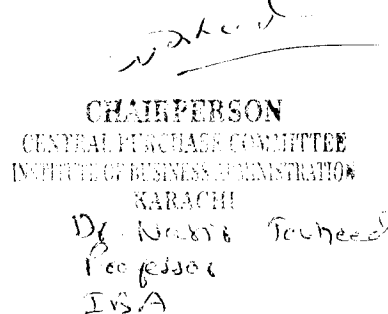 CHAIRPERSON
CENTRAL PURCHASE COMMITTEE
INSTITUTE OF BUSINESS ADMINISTRATION
KARACHI
Dr. Touheed
Professor
IBA